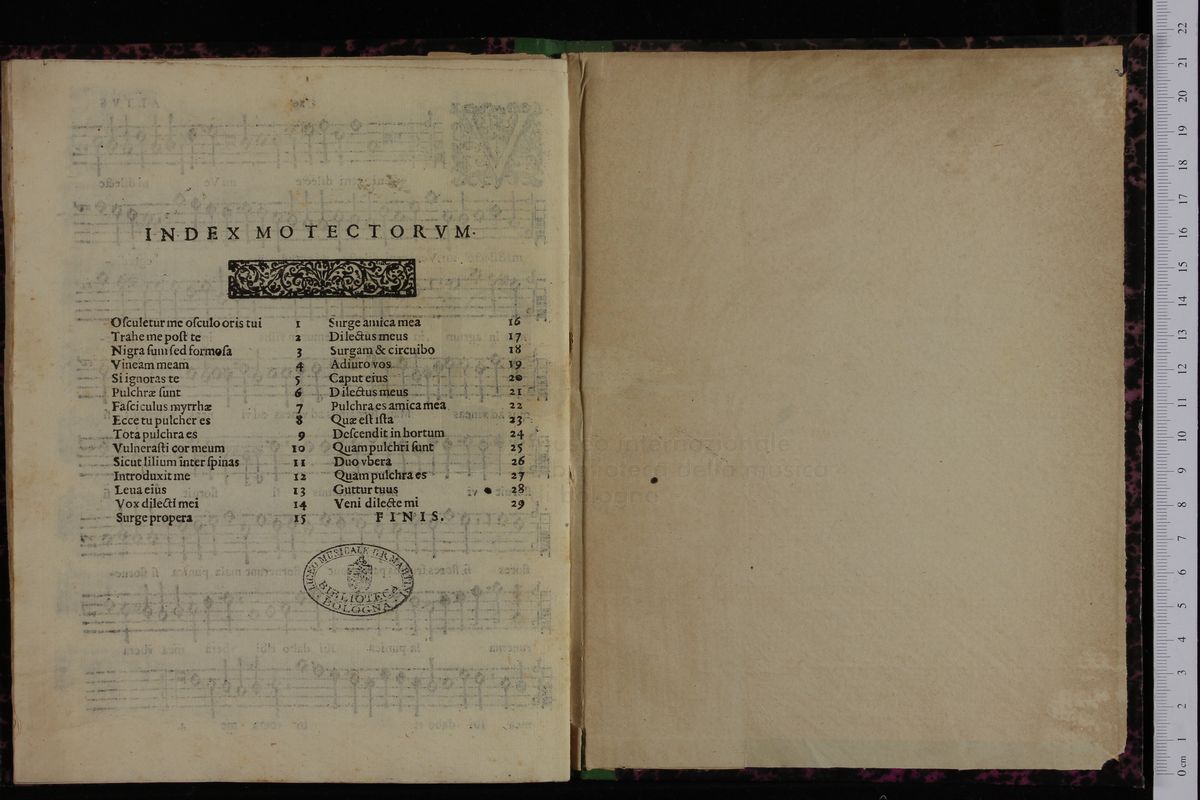 INDEX MOTECTORVM.
Oſculetur me oſculo oris tui 1
Trahe me poſt te 2
Nigra ſum ſed formoſa 3
Vineam meam 4
Si ignoras te 5
Pulchræ ſunt 6
Faſciculus myrrhæ 7
Ecce tu pulcher es 8
Tota pulchra es 9
Vulneraſti cor meum 10
Sicut lilium inter ſpinas 11
Introduxit me 12
Leua eius 13
Vox dilecti mei 14
Surge propera 15
Surge amica mea 16
Dilectus meus 17
Surgam & circuibo 18
Adiuro vos 19
Caput eius 20
Dilectus meus 21
Pulchra es amica mea 22
Quæ eſt iſta 23
Deſcendit in hortum 24
Quam pulchri ſunt 25
Duo vbera 26
Quam pulchra es 27
Guttur tuus 28
Veni dilecte mi 29
FINIS.
LICEO MUSICALE G.B. MARTINI
BIBLIOTECA
BOLOGNA
museo internazionale
biblioteca della musica
bologna
0 cm 1 2 3 4 5 6 7 8 9 10 11 12 13 14 15 16 17 18 19 20 21 22